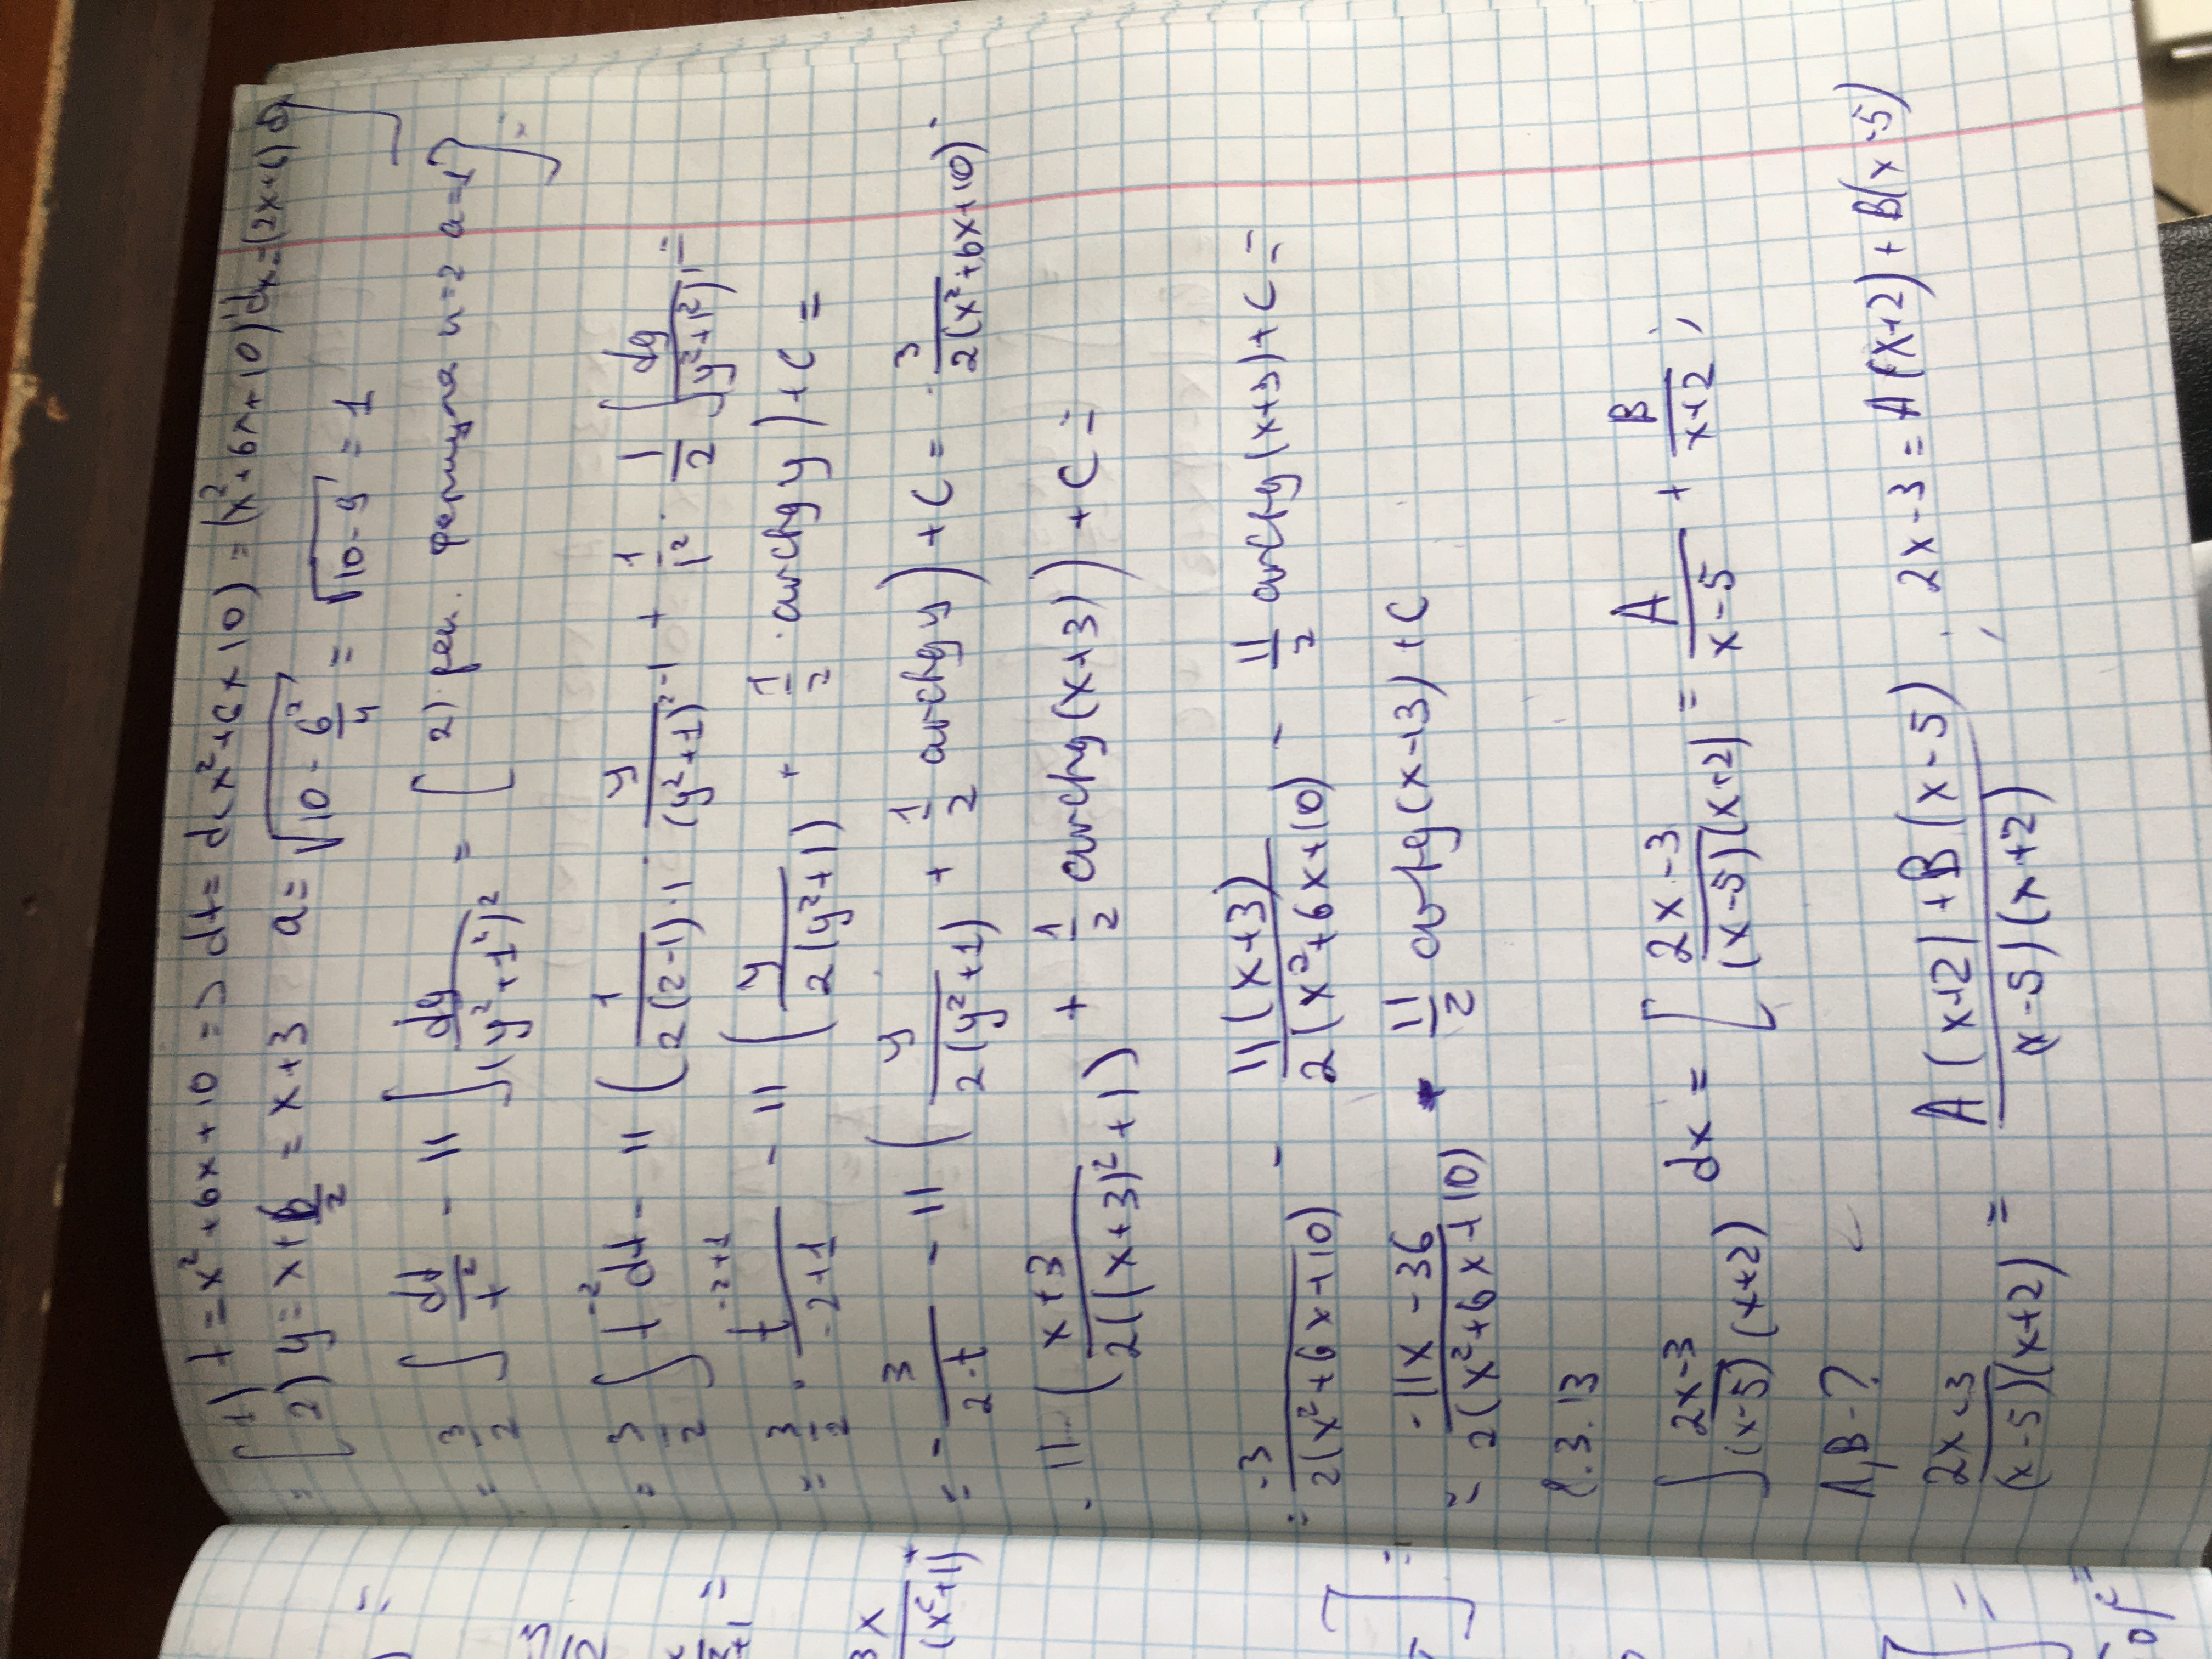 = [ 1) t = x² + 6x + 10 => dt = d(x² + 6x 10) = (x² + 6x + 10)' dx = (2x + 6) d
2) y = x + 6/2 = x + 3 a = √(10 - 6²/4) = √(10 - 9) = 1 ]
= 3/2 ∫ dt/t² - 11 ∫ dy/(y² + 1²)² = [ 2) рек. формула n=2 a=1 ] =
= 3/2 ∫ t⁻² dt - 11 ( 1/(2(2-1)·1) · y/(y²+1)²⁻¹ + 1/1² · 1/2 ∫ dy/(y²+1²)¹ =
= 3/2 · t⁻²⁺¹/(-2+1) - 11 ( y/(2(y²+1)) + 1/2 · arctg y ) + C =
= - 3/(2·t) - 11 ( y/(2(y²+1)) + 1/2 arctg y ) + C = - 3/(2(x²+6x+10)) -
- 11 · ( (x+3)/(2((x+3)²+1) + 1/2 arctg(x+3) ) + C =
= -3/(2(x²+6x+10)) - 11(x+3)/(2(x²+6x+10)) - 11/2 arctg(x+3) + C =
= (-11x - 36)/(2(x²+6x+10)) - 11/2 artg(x+3) + C
8.3.13
∫ (2x-3)/((x-5)(x+2)) dx = [ (2x-3)/((x-5)(x+2)) = A/(x-5) + B/(x+2) ;
A, B - ?
(2x-3)/((x-5)(x+2)) = (A(x+2) + B(x-5))/((x-5)(x+2)) ; 2x-3 = A(x+2) + B(x-5)